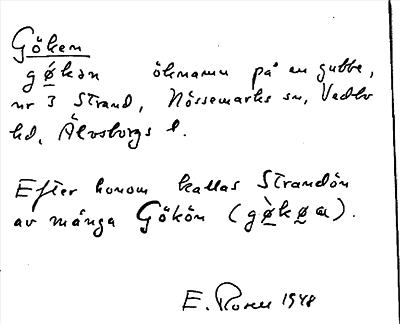 Göken
gø̠kən öknamn på en gubbe,
nr 3 Strand, Nössemarks sn, Vedbo
hd, Älvsborgs l.
Efter honom kallas Strandön
av många Gökön (gø̠̀kø̠n).
E. Rosell 1948